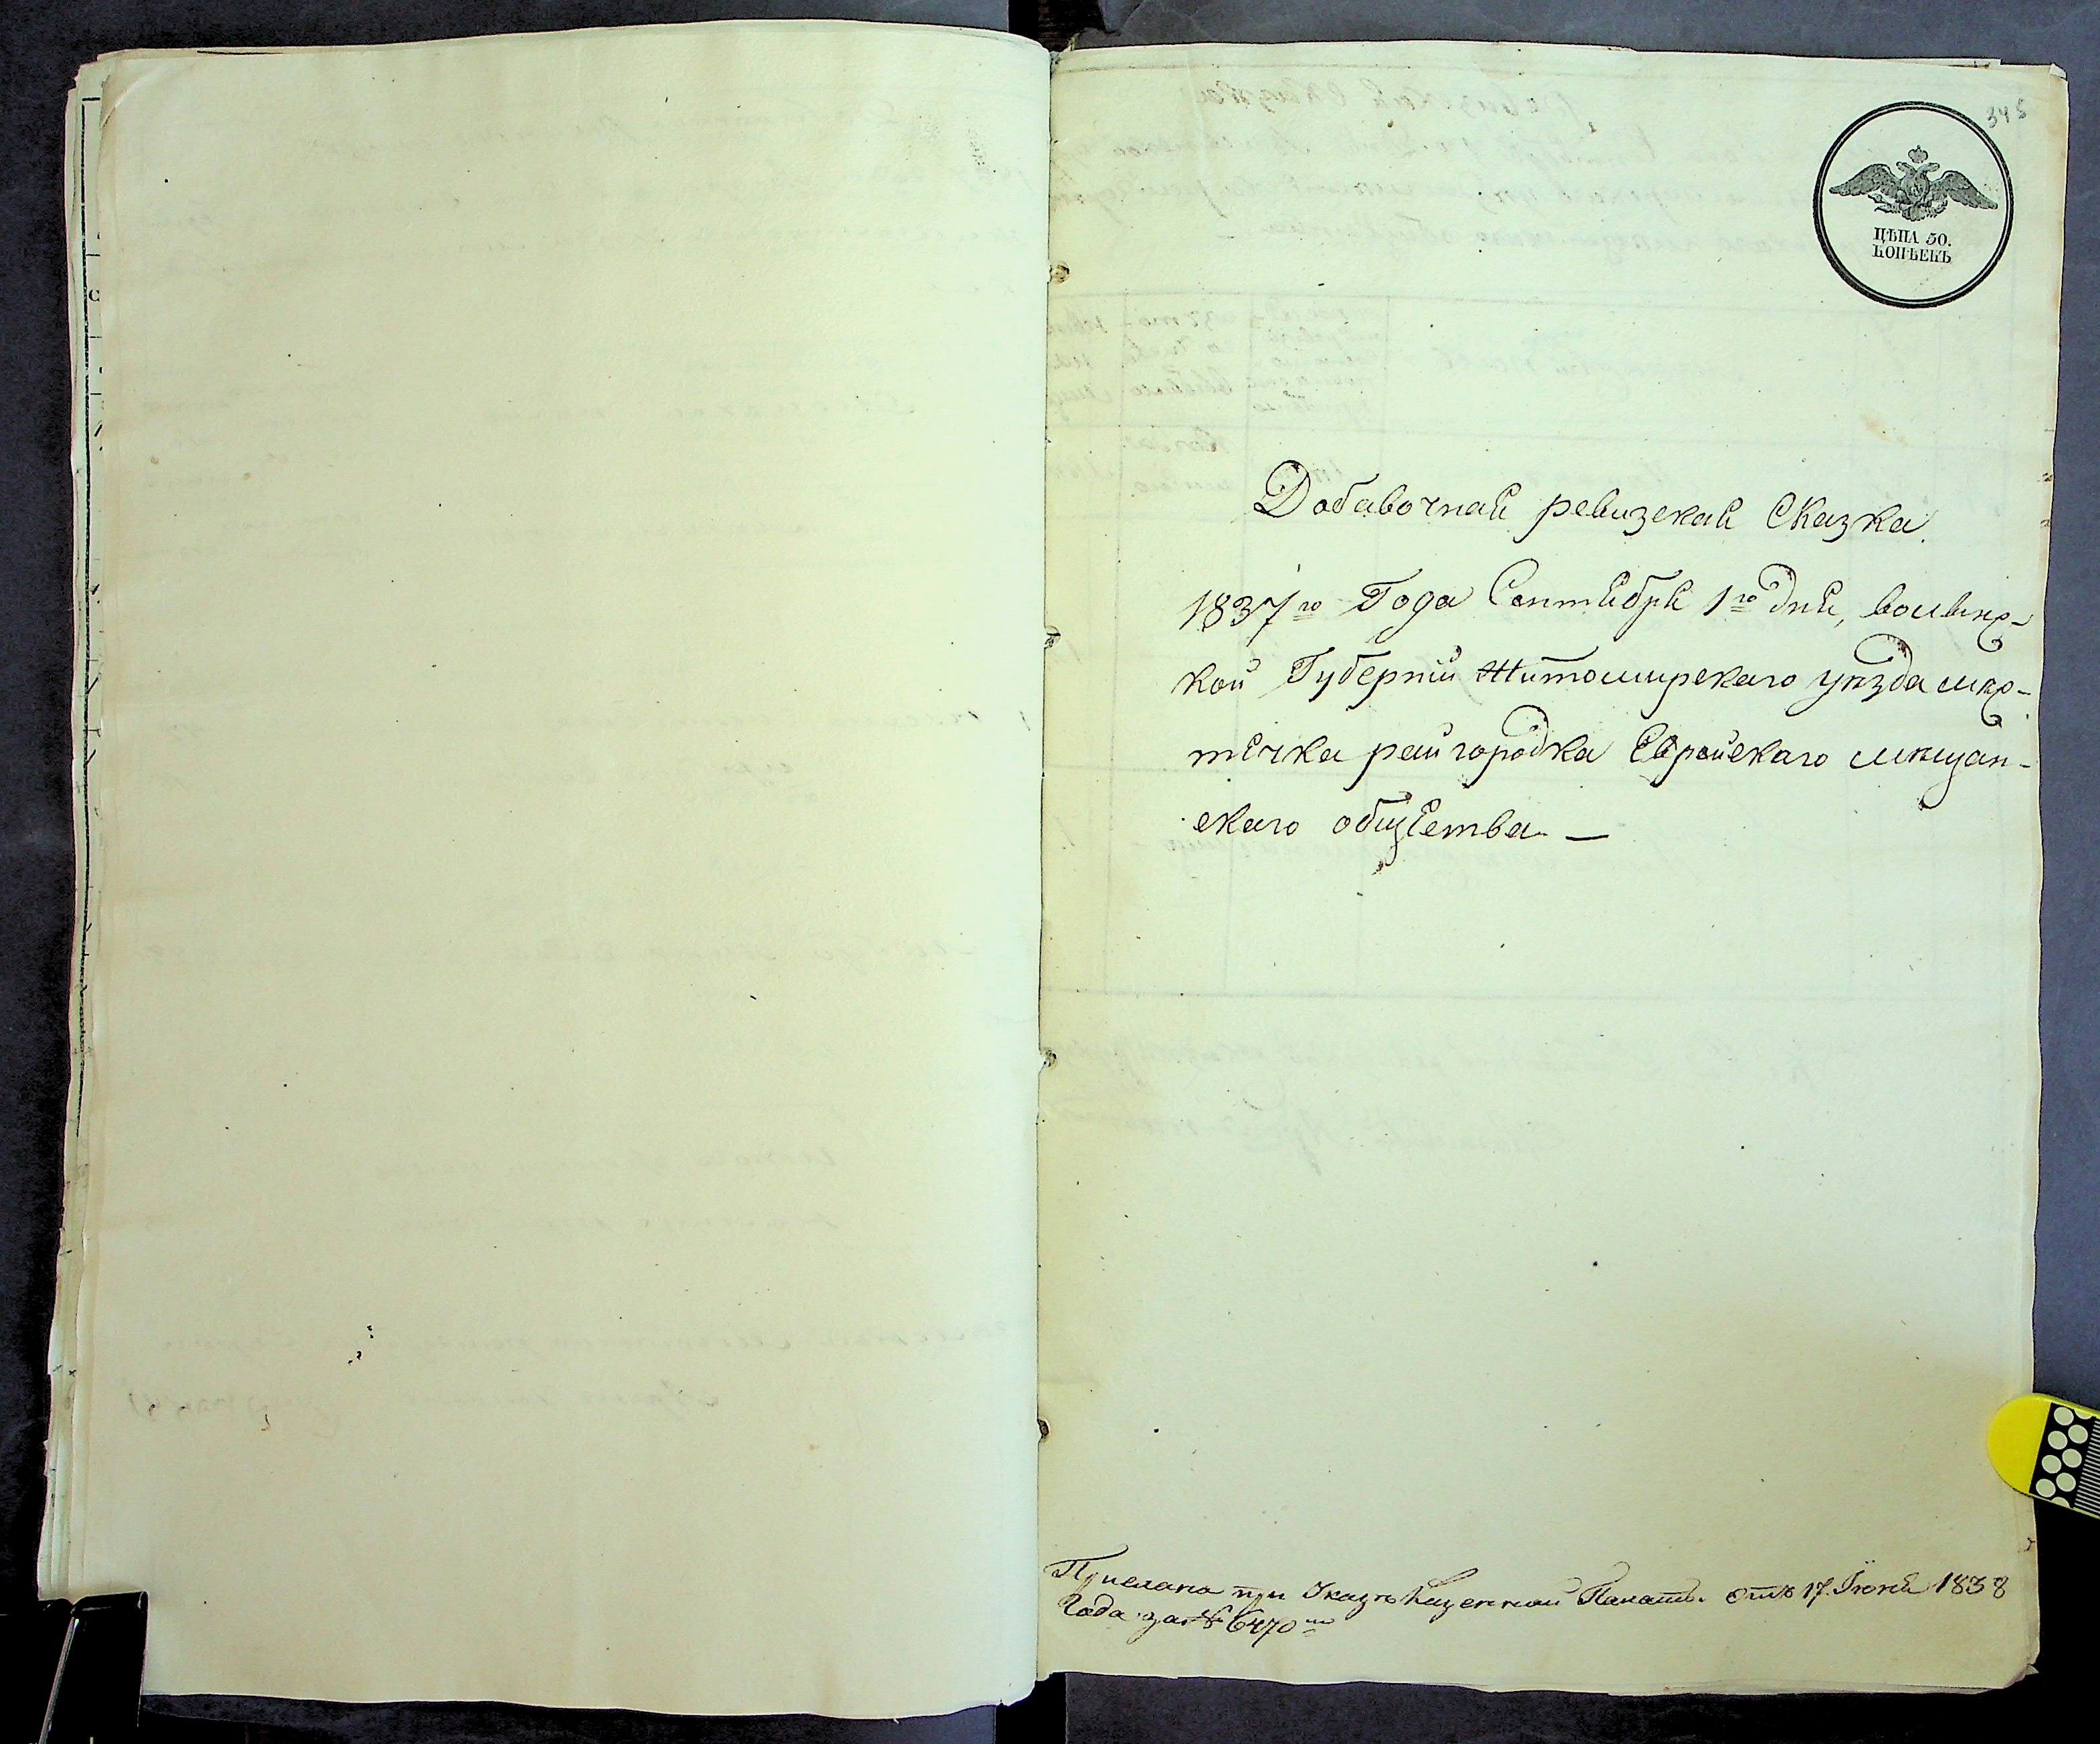 345
ЦѢНА 50.
КОПѢЕКЪ
Добавочная ревизская Сказка.
1837го Года Сентября 1го дня, волынс-
кой Губерніи Житомирскаго уѣзда мѣс-
течка райгородка Еврейскаго мѣщан-
скаго общества —
Прислана при Указѣ Казенной Палаты отъ 17. Іюня 1838
Года за № 6470мъ